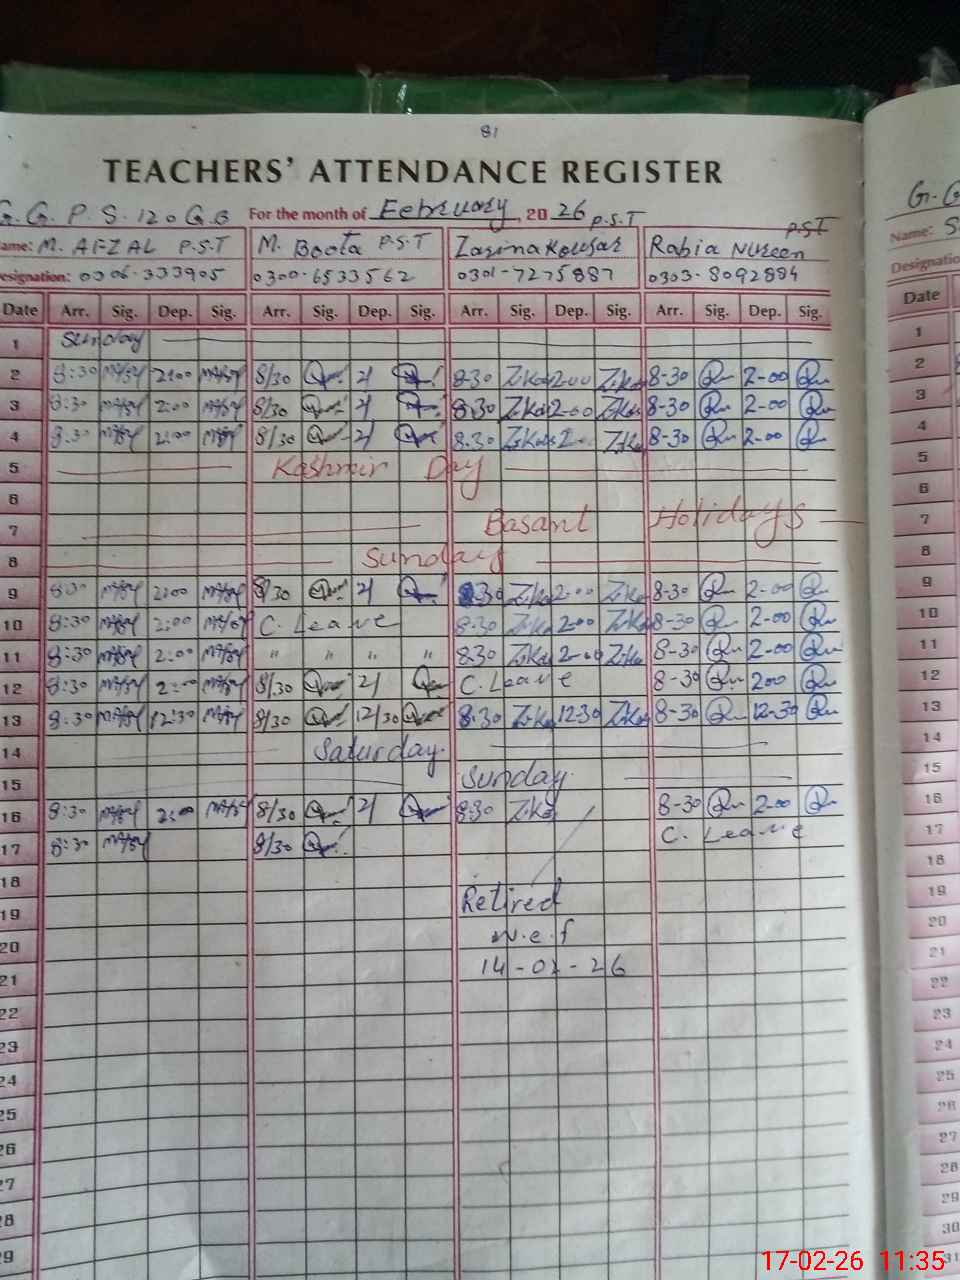 81
TEACHERS' ATTENDANCE REGISTER
G.G.P.S. 120 G.B For the month of February, 2026
Name: M. AFZAL P.S.T M. Boota P.S.T Zarina Kousar P.S.T Rabia Nureen P.S.T
Designation: 0306-333905 0300-6533562 0301-7275887 0303-8092884
Date Arr. Sig. Dep. Sig. Arr. Sig. Dep. Sig. Arr. Sig. Dep. Sig. Arr. Sig. Dep. Sig.
1 Sunday
2 8:30 2:00 8/30 2/ 8-30 2-00 8-30 2-00
3 8:30 2:00 8/30 2/ 8.30 2-00 8-30 2-00
4 8:30 2:00 8/30 2/ 8.30 8-30 2-00
5 Kashmir Day
6
7 Basant Holidays
8 Sunday
9 8:30 2:00 8/30 2/ 8.30 2-00 8-30 2-00
10 8:30 2:00 C. Leave 8.30 2-00 8-30 2-00
11 8:30 2:00 " " " " 8.30 2-00 8-30 2-00
12 8:30 2:00 8/30 2/ C. Leave 8-30 2-00
13 8:30 12:30 8/30 12/30 8.30 12-30 8-30 12-30
14 Saturday.
15 Sunday.
16 8:30 2:00 8/30 2/ 8.30 8-30 2-00
17 8:30 8/30 C. Leave
18
19 Retired
20 w.e.f
21 14-02-26
22
23
24
25
26
27
28
29
G.G
Name: S
Designatio
Date
1
2
3
4
5
6
7
8
9
10
11
12
13
14
15
16
17
18
19
20
21
22
23
24
25
26
27
28
29
30
31
17-02-26 11:35